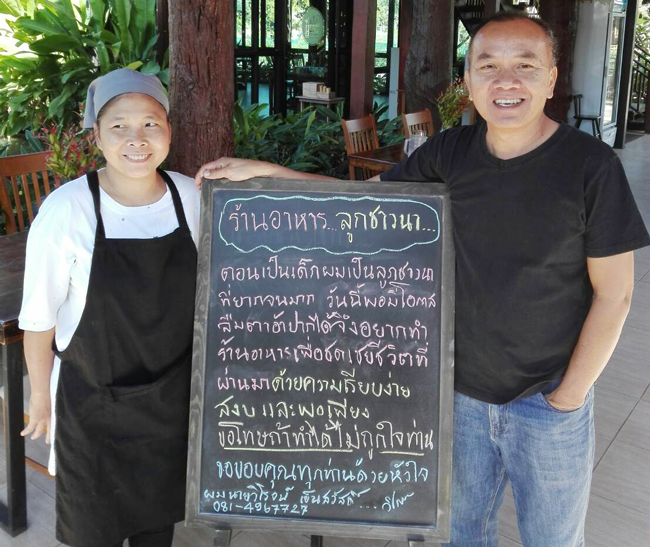 ร้านอาหาร...ลูกชาวนา...
ตอนเป็นเด็กผมเป็นลูกชาวนา
ที่ยากจนมาก วันนี้พอมีโอกาส
ลืมตาอ้าปากได้จึงอยากทำ
ร้านอาหารเพื่อชดเชยชีวิตที่
ผ่านมาด้วยความเรียบง่าย
สงบ และพอเพียง
ขอโทษถ้าทำได้ไม่ถูกใจท่าน
ขอขอบคุณทุกท่านด้วยหัวใจ
ผมนายวิโรจน์
081-4967727